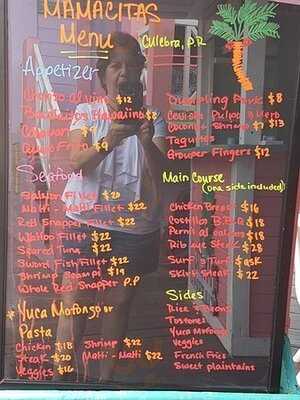 MAMACITAS
Menu
Culebra, P.R
Appetizer
Chorizo al vino $12
Hawaiino $8
Calamari $9
Queso Frito $9
Dumpling Pork $8
Ceviche Pulpo & Herb
Coconut Shrimp $9 $13
Taquitos
Grouper Fingers $12
Seafood
Salmon Fillet $20
Mahi-Mahi Fillet $22
Red Snapper Fillet $22
Wahoo Fillet $22
Seared Tuna $22
Sword Fish Fillet $22
Shrimp Scampi $19
Whole Red Snapper P.P
Main Course
(One side included)
Chicken Breast $16
Costillas B.B.Q $18
Pernil al caldero $18
Rib eye Steak $28
Surf & Turf $ask
Skirt Steak $22
* Yuca Mofongo or
Pasta
Chicken $18 Shrimp $22
Steak $20 Mahi-Mahi $22
Veggies $16
Sides
Rice & Beans
Tostones
Yuca Mofongo
Veggies
French Fries
Sweet plantains